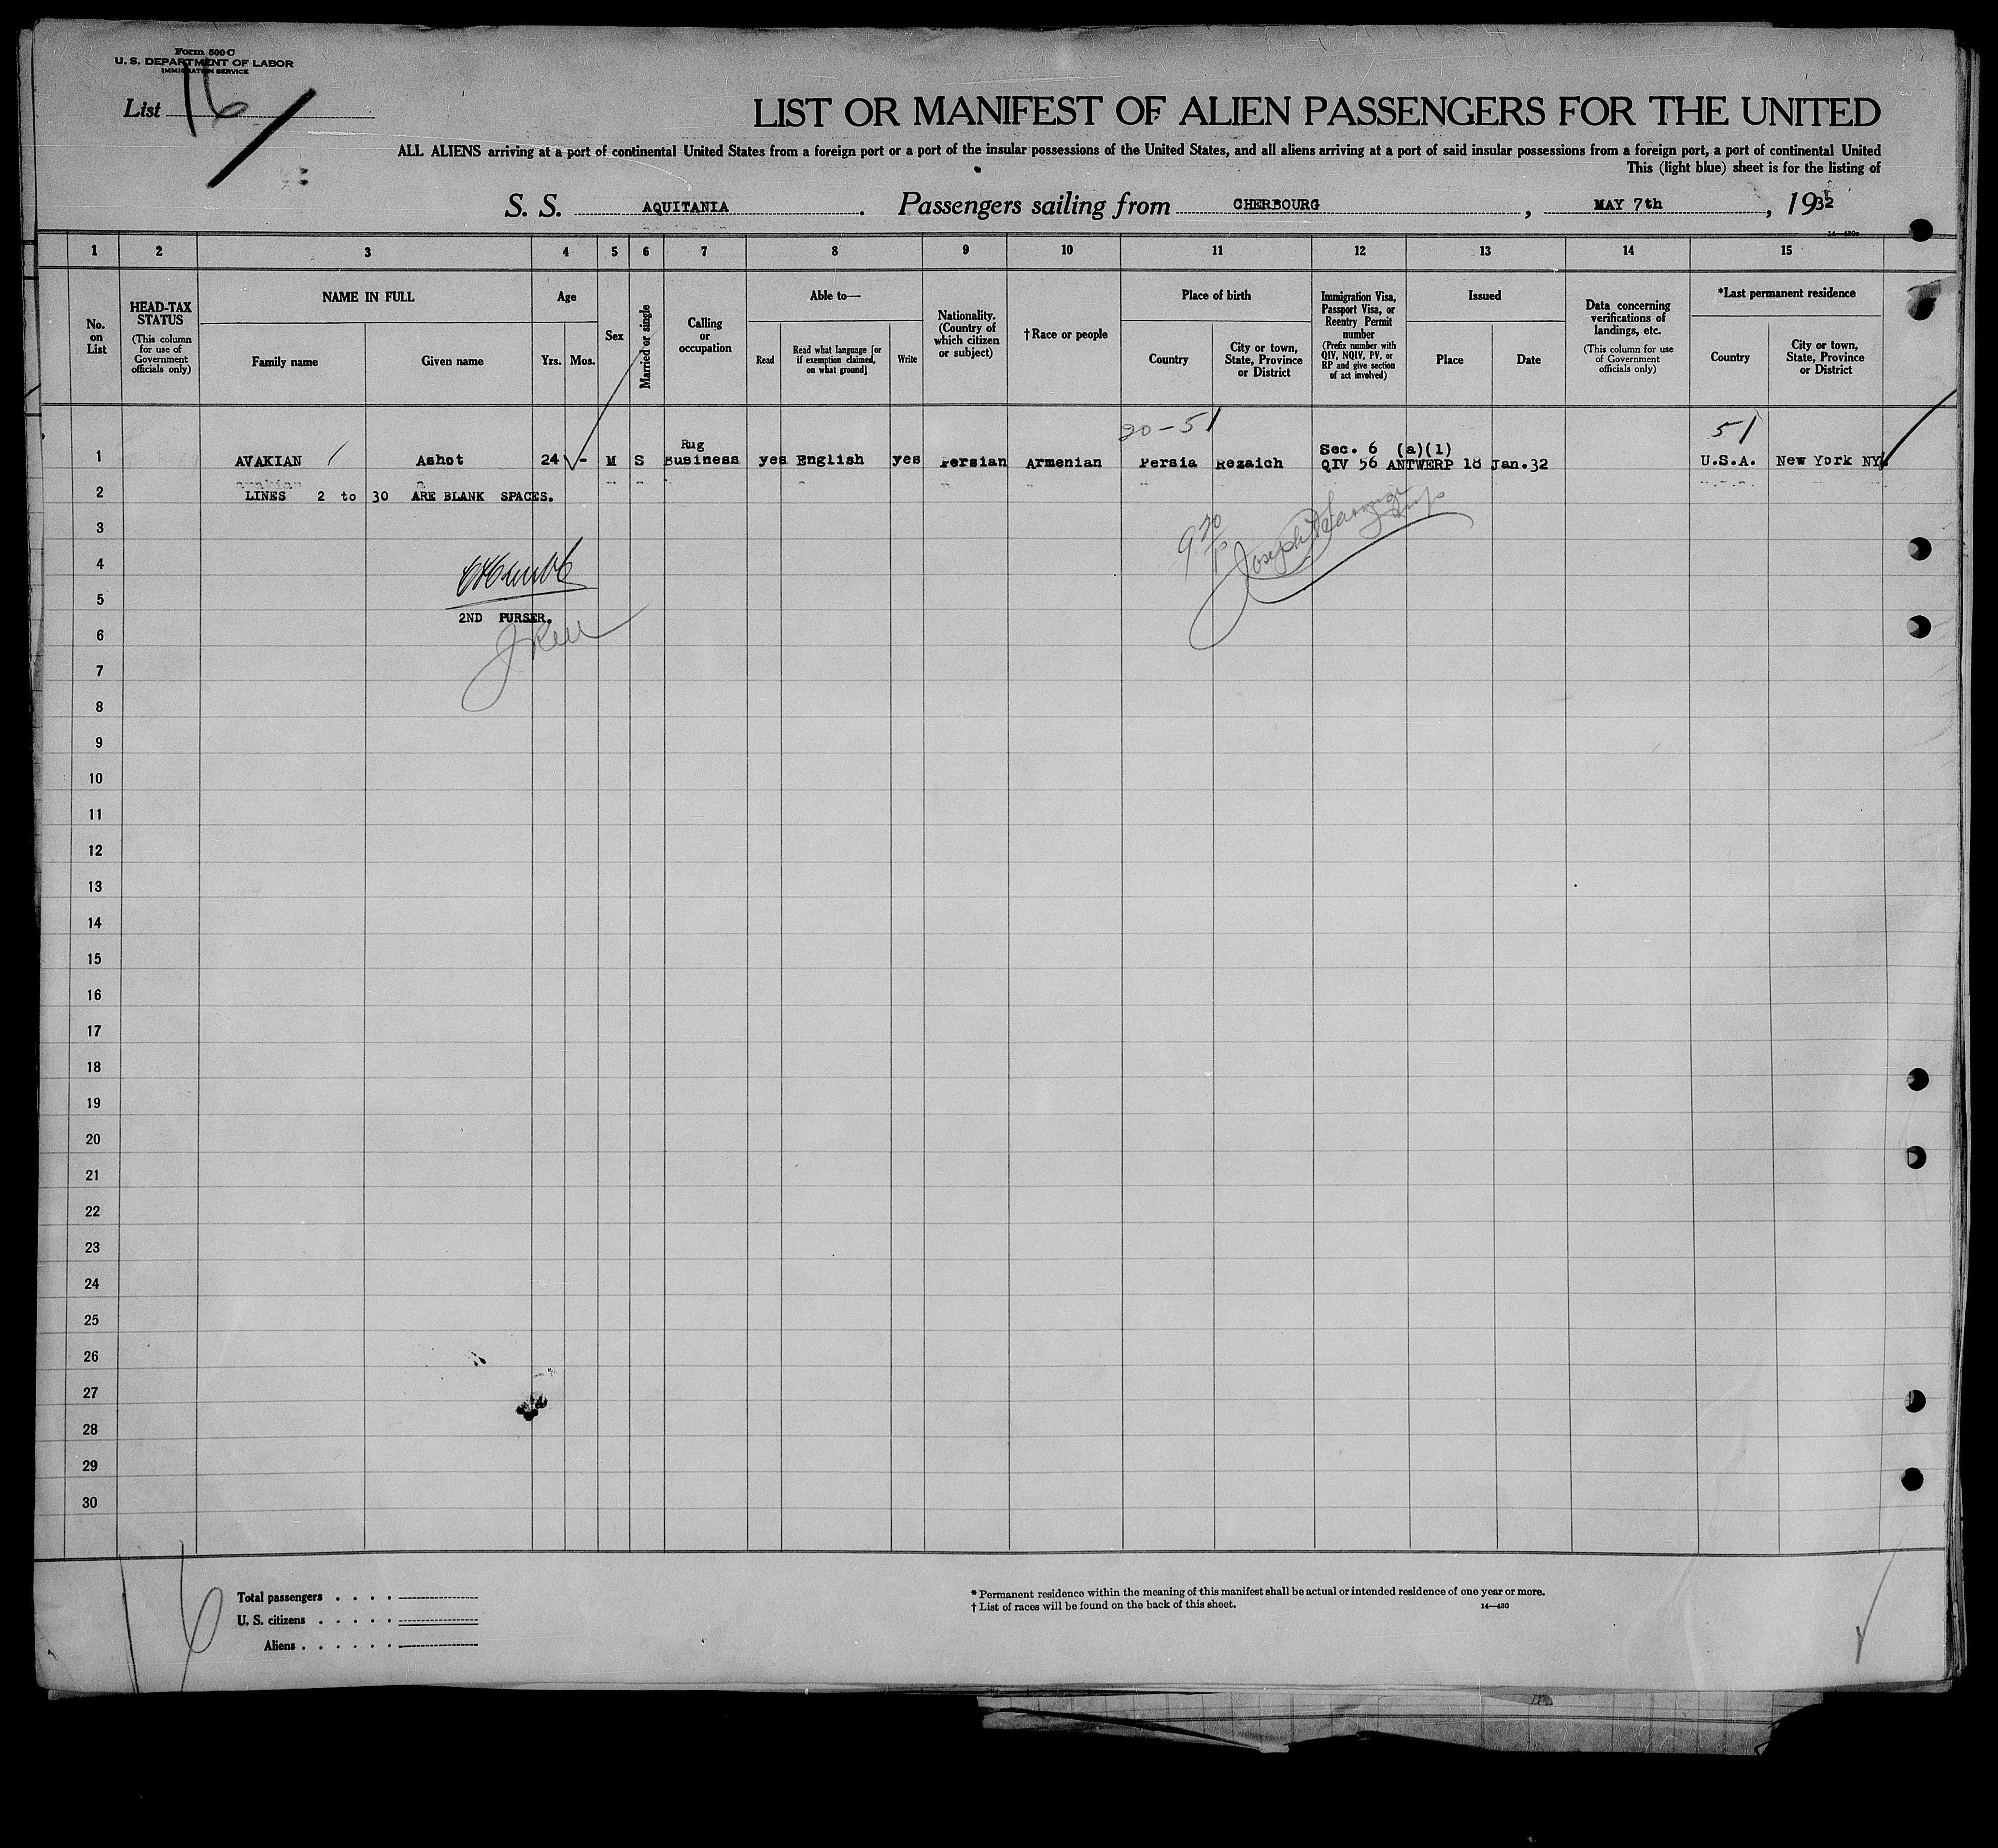 Form 500 C
U. S. DEPARTMENT OF LABOR
IMMIGRATION SERVICE
List 16
LIST OR MANIFEST OF ALIEN PASSENGERS FOR THE UNITED
ALL ALIENS arriving at a port of continental United States from a foreign port or a port of the insular possessions of the United States, and all aliens arriving at a port of said insular possessions from a foreign port, a port of continental United
This (light blue) sheet is for the listing of
S. S. AQUITANIA . Passengers sailing from CHERBOURG , MAY 7th , 1932
1 2 3 4 5 6 7 8 9 10 11 12 13 14 15
No. on List
HEAD-TAX STATUS
(This column for use of Government officials only)
NAME IN FULL
Family name
Given name
Age
Yrs. Mos.
Sex
Married or single
Calling or occupation
Able to—
Read
Read what language [or if exemption claimed, on what ground]
Write
Nationality. (Country of which citizen or subject)
†Race or people
Place of birth
Country
City or town, State, Province or District
Immigration Visa, Passport Visa, or Reentry Permit number
(Prefix number with QIV, NQIV, PV, or RP and give section of act involved)
Issued
Place
Date
Data concerning verifications of landings, etc.
(This column for use of Government officials only)
*Last permanent residence
Country
City or town, State, Province or District
20-51
51
Rug
Sec. 6 (a)(1)
1 AVAKIAN Ashot 24 - M S Business yes English yes Persian Armenian Persia Rezaich QIV 56 ANTWERP 18 Jan.32 U.S.A. New York NY.
2 LINES 2 to 30 ARE BLANK SPACES.
3
4
5
2ND PURSER.
6
7
8
9
10
11
12
13
14
15
16
17
18
19
20
21
22
23
24
25
26
27
28
29
30
16
Total passengers . . . .
U. S. citizens . . . . .
Aliens . . . . . .
* Permanent residence within the meaning of this manifest shall be actual or intended residence of one year or more.
† List of races will be found on the back of this sheet.
14—430